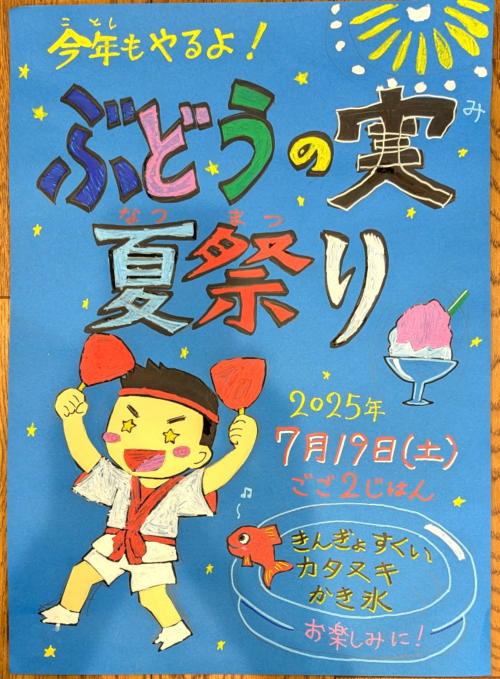 ことし
今年もやるよ!
ぶどうの実
み
なつ まつ
夏祭り
2025年
7月19日(土)
ごご2じはん
きんぎょすくい
カタヌキ
かき氷
お楽しみに!